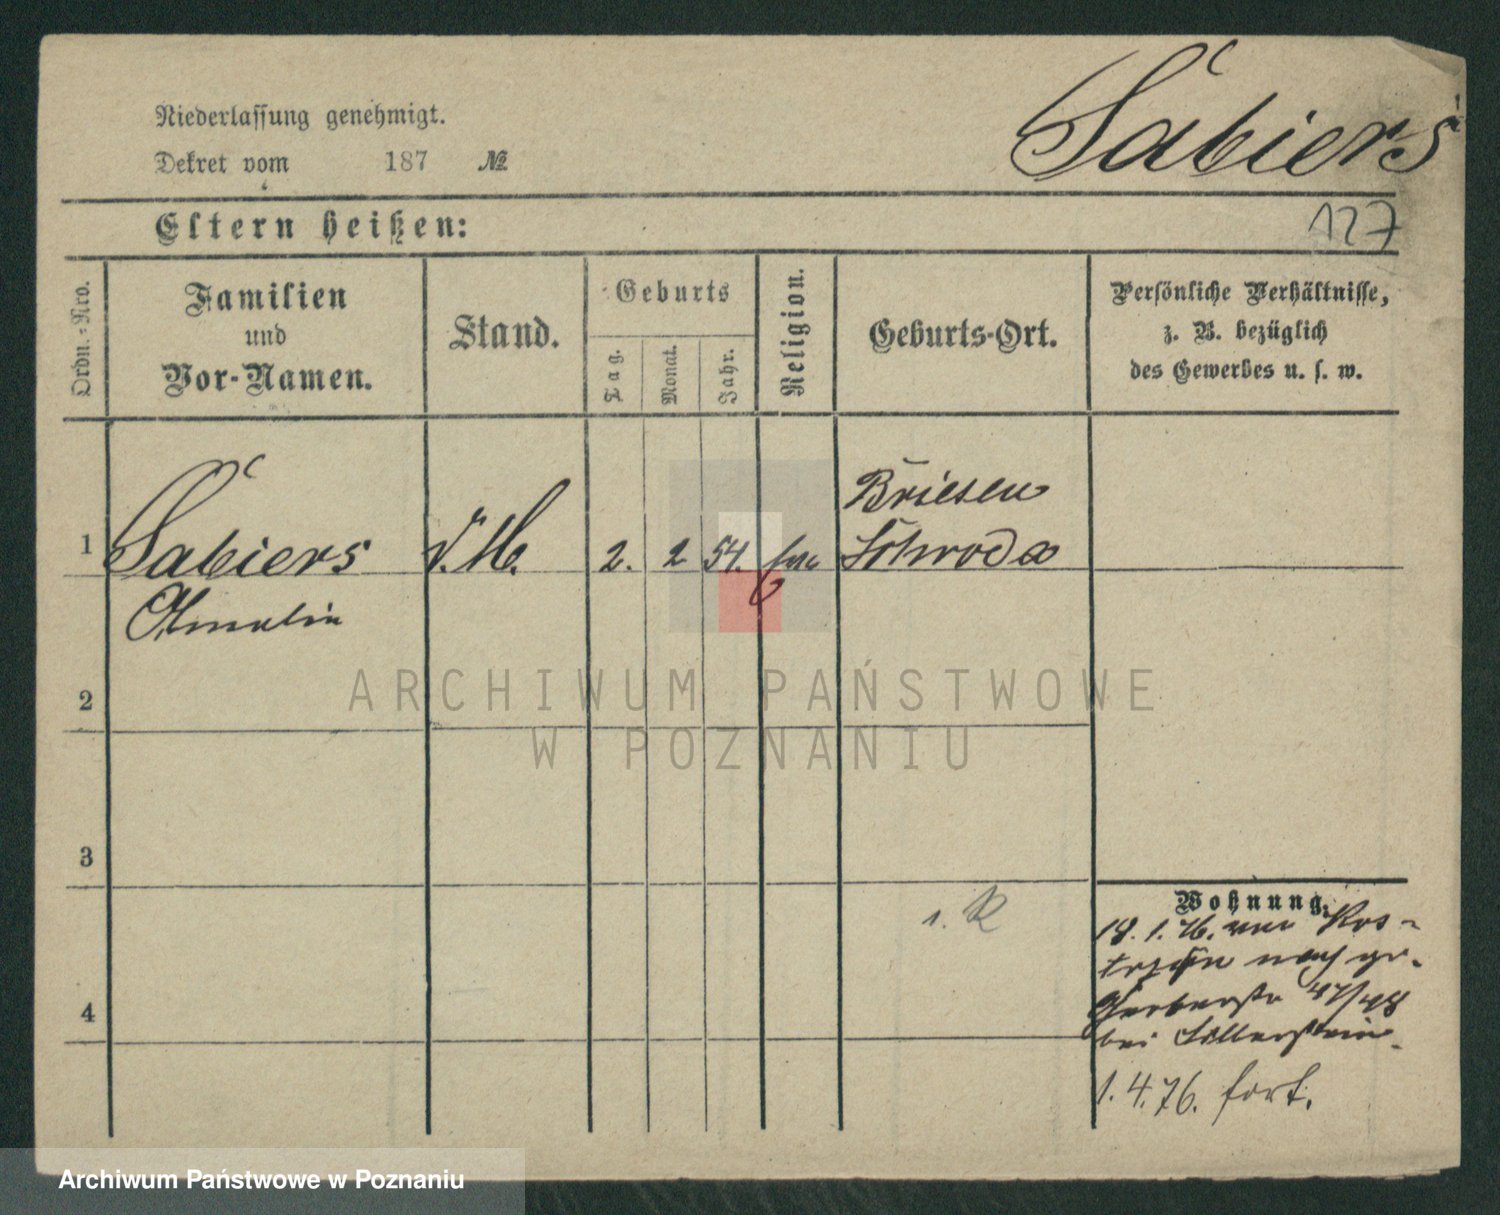 Sabiers
Niederlassung genehmigt.
Dekret vom 187 №
Eltern heißen:
127
Ordn.-Nro.
Familien
und
Vor-Namen.
Stand.
Geburts
Tag.
Monat.
Jahr.
Religion.
Geburts-Ort.
Persönliche Verhältnisse,
z. B. bezüglich
des Gewerbes u. s. w.
Briesen
1 Sabiers 2. 2 54. Schroda
Amalie
2
3
4
Wohnung.
18. 1. 76. von Kos-
trzyn nach gr.
Gerberstr 47/48
bei
1. 4. 76. fort.
ARCHIWUM PAŃSTWOWE
W POZNANIU
Archiwum Państwowe w Poznaniu